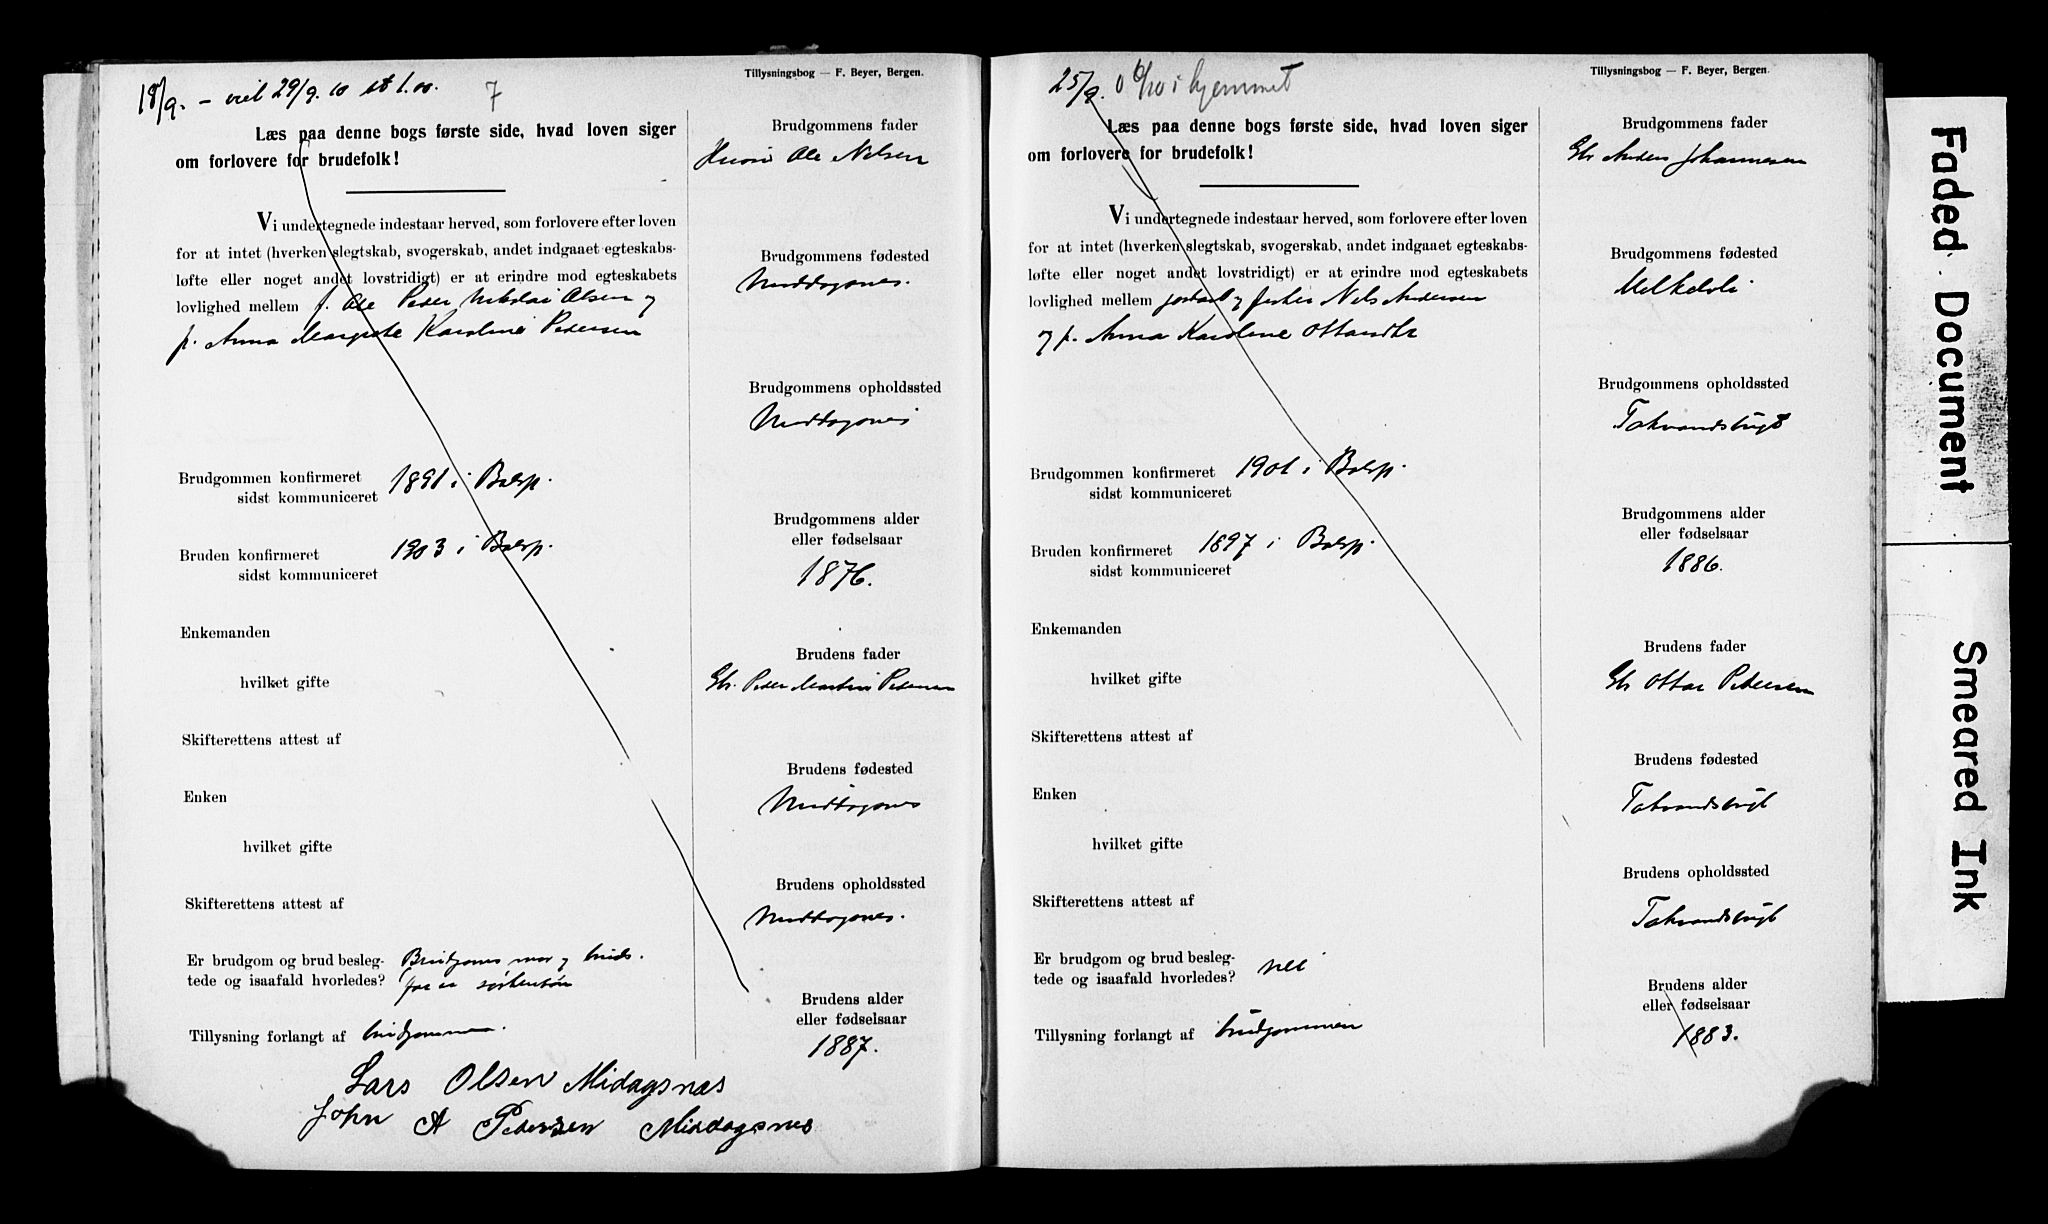 18/9. – viet 29/9. 10 kl 1.00.
7
Tillysningsbog — F. Beyer, Bergen.
Læs paa denne bogs første side, hvad loven siger
om forlovere for brudefolk!
Vi undertegnede indestaar herved, som forlovere efter loven
for at intet (hverken slegtskab, svogerskab, andet indgaaet egteskabs-
løfte eller noget andet lovstridigt) er at erindre mod egteskabets
lovlighed mellem f. Ole Peder Nikolai Olsen og
p. Anna Margrete Karoline Pedersen
Brudgommen konfirmeret 1891 i Balsp.
sidst kommuniceret
Bruden konfirmeret 1903 i Balsp.
sidst kommuniceret
Enkemanden
hvilket gifte
Skifterettens attest af
Enken
hvilket gifte
Skifterettens attest af
Er brudgom og brud besleg- Brudgoms mor og bruds
tede og isaafald hvorledes? far er søskenbørn
Tillysning forlangt af brudgommen.
Lars Olsen Midagsnæs
John A Pedersen Middagsnes
Brudgommens fader
Ole Nilsen
Brudgommens fødested
Middagsnes.
Brudgommens opholdssted
Middagsnes
Brudgommens alder
eller fødselsaar
1876.
Brudens fader
Gbr. Peder Martin Pedersen
Brudens fødested
Middagsnes
Brudens opholdssted
Middagsnes.
Brudens alder
eller fødselsaar
1887.
25/9. 6/10 i hjemmet
Tillysningsbog — F. Beyer, Bergen.
Læs paa denne bogs første side, hvad loven siger
om forlovere for brudefolk!
Vi undertegnede indestaar herved, som forlovere efter loven
for at intet (hverken slegtskab, svogerskab, andet indgaaet egteskabs-
løfte eller noget andet lovstridigt) er at erindre mod egteskabets
lovlighed mellem jordarb og fisker Nils Andersen
og p. Anna Karoline Ottarsdtr
Brudgommen konfirmeret 1901 i Balsp.
sidst kommuniceret
Bruden konfirmeret 1897 i Balsp.
sidst kommuniceret
Enkemanden
hvilket gifte
Skifterettens attest af
Enken
hvilket gifte
Skifterettens attest af
Er brudgom og brud besleg-
tede og isaafald hvorledes? nei
Tillysning forlangt af brudgommen
Brudgommens fader
Gbr Anders Johannesen
Brudgommens fødested
Melkelvli
Brudgommens opholdssted
Takvandsbugt
Brudgommens alder
eller fødselsaar
1886.
Brudens fader
Gbr Ottar Petersen
Brudens fødested
Takvandsbugt
Brudens opholdssted
Takvandsbugt
Brudens alder
eller fødselsaar
1883.
Faded Document
Smeared Ink